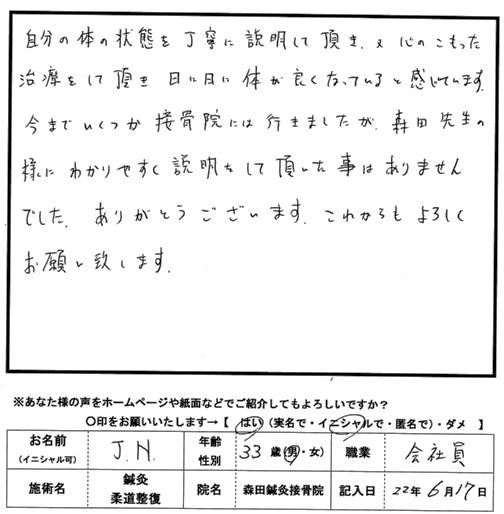 自分の体の状態を丁寧に説明して頂き、又心のこもった
治療をして頂き 日に日に体が良くなっていると感じています。
今までいくつか接骨院には行きましたが、森田先生の
様にわかりやすく説明をして頂いた事はありません
でした。ありがとうございます。これからもよろしく
お願い致します。
※あなた様の声をホームページや紙面などでご紹介してもよろしいですか？
〇印をお願いいたします→【 はい（実名で・イニシャルで・匿名で）・ダメ 】
お名前 (イニシャル可) J.N. 年齢 性別 33 歳（男・女） 職業 会社員
施術名 鍼灸 柔道整復 院名 森田鍼灸接骨院 記入日 22年 6月17日